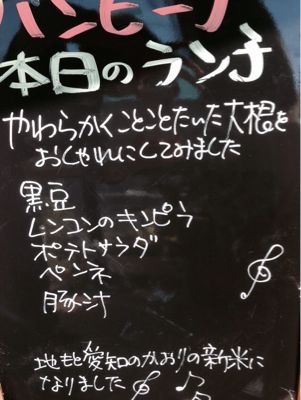 ハンビーノ
本日のランチ
やわらかくことことたいた大根を
おしゃれにしてみました
黒豆
レンコンのキンピラ
ポテトサラダ
ペンネ
豚汁
地もと愛知のかおりの新米に
なりました